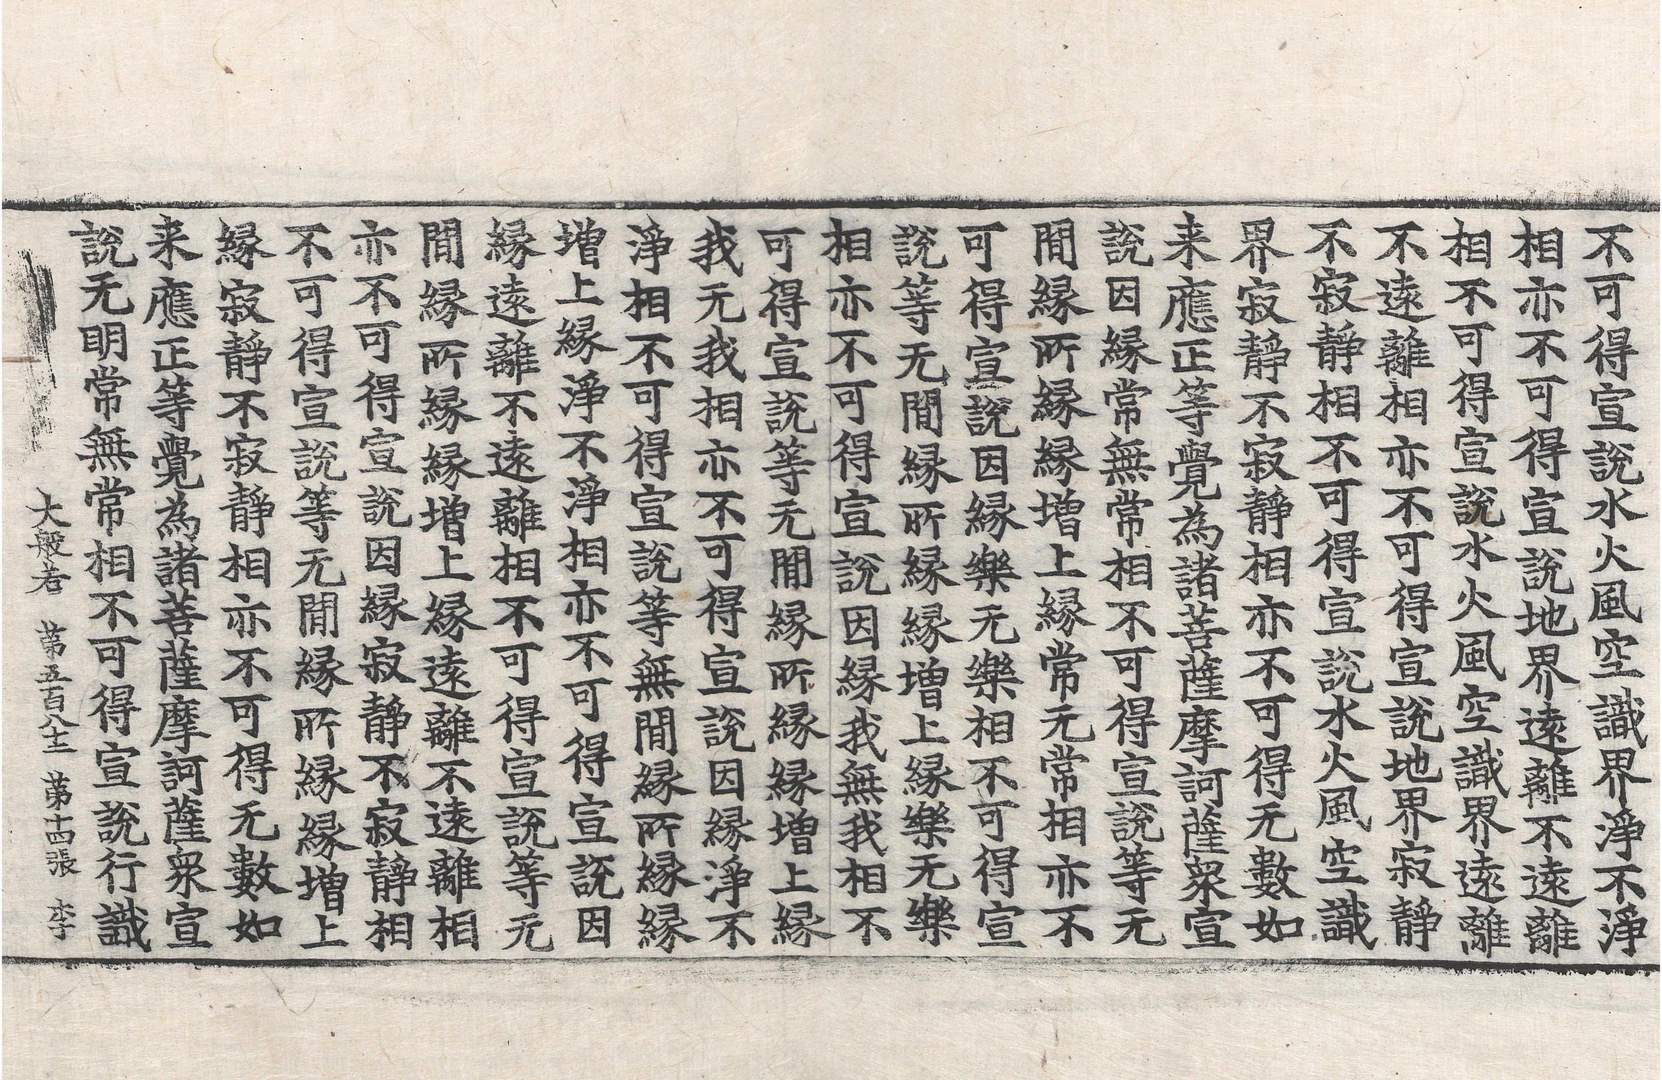 不可得宣說水火風空識界淨不淨
相亦不可得宣說地界遠離不遠離
相不可得宣說水火風空識界遠離
不遠離相亦不可得宣說地界寂靜
不寂靜相不可得宣說水火風空識
界寂靜不寂靜相亦不可得无數如
来應正等覺為諸菩薩摩訶薩衆宣
說因緣常無常相不可得宣說等无
間緣所緣緣增上緣常无常相亦不
可得宣說因緣樂无樂相不可得宣
說等无間緣所緣緣增上緣樂无樂
相亦不可得宣說因緣我無我相不
可得宣說等无間緣所緣緣增上緣
我无我相亦不可得宣說因緣淨不
淨相不可得宣說等無間緣所緣緣
增上緣淨不淨相亦不可得宣說因
緣遠離不遠離相不可得宣說等无
間緣所緣緣增上緣遠離不遠離相
亦不可得宣說因緣寂靜不寂靜相
不可得宣說等无間緣所緣緣增上
緣寂靜不寂靜相亦不可得无數如
来應正等覺為諸菩薩摩訶薩衆宣
說无明常無常相不可得宣說行識
大般若 第五百八十二 第十四張 李